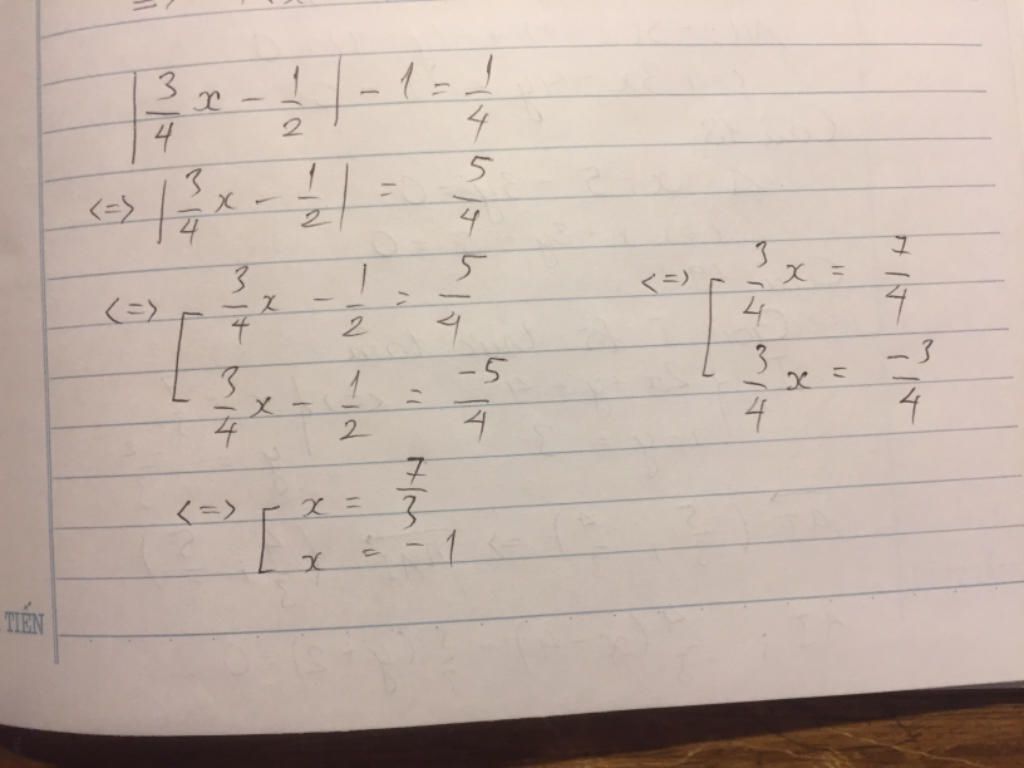 |3/4 x - 1/2| - 1 = 1/4
<=> |3/4 x - 1/2| = 5/4
<=> [ 3/4 x - 1/2 = 5/4
3/4 x - 1/2 = -5/4
<=> [ 3/4 x = 7/4
3/4 x = -3/4
<=> [ x = 7/3
x = -1
TIẾN